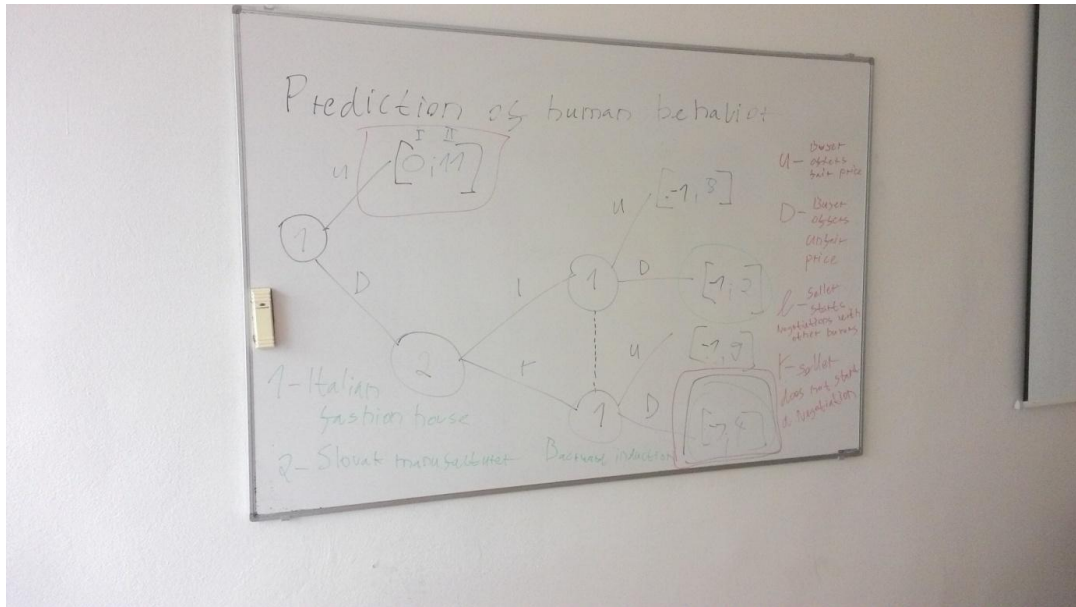 Prediction of human behavior
I II
U [0;11]
1
D
2
l
r
1
U [-1, 8]
D [1, 2]
1
U
D
1-Italian
fashion house
2- Slovak manufacturer
Backward induction
U- Buyer
offers
fair price
D- Buyer
offers
unfair
price
l- Seller
starts
negotiations with
other buyers
r- seller
does not start
a negotiation